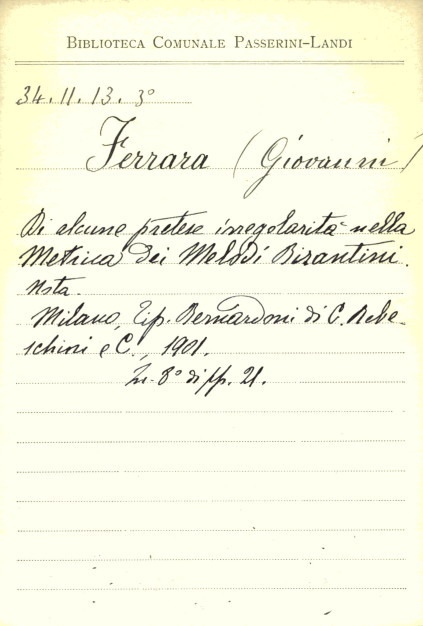 BIBLIOTECA COMUNALE PASSERINI-LANDI
34.11.13.3°
Ferrara (Giovanni)
Di alcune pretese irregolarità nella
Metrica dei Melodi Bizantini.
Nota.
Milano, Tip. Bernardoni di C. Rebe-
schini e C., 1901.
In-8° di pp. 21.